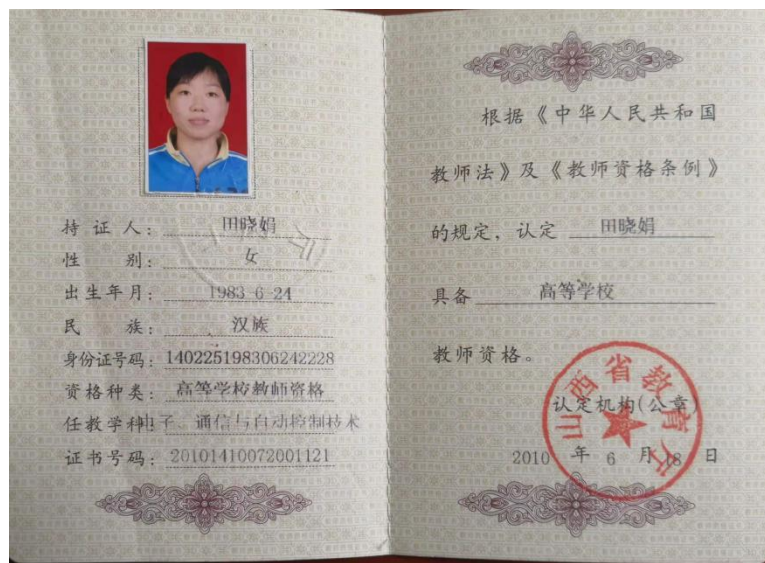 持 证 人: 田晓娟
性 别: 女
出生年月: 1983-6-24
民 族: 汉族
身份证号码: 140225198306242228
资格种类: 高等学校教师资格
任教学科: 电子、通信与自动控制技术
证书号码: 20101410072001121
根据《中华人民共和国
教师法》及《教师资格条例》
的规定, 认定 田晓娟
具备 高等学校
教师资格。
山西省教育厅
认定机构(公章)
2010 年 6 月 18 日